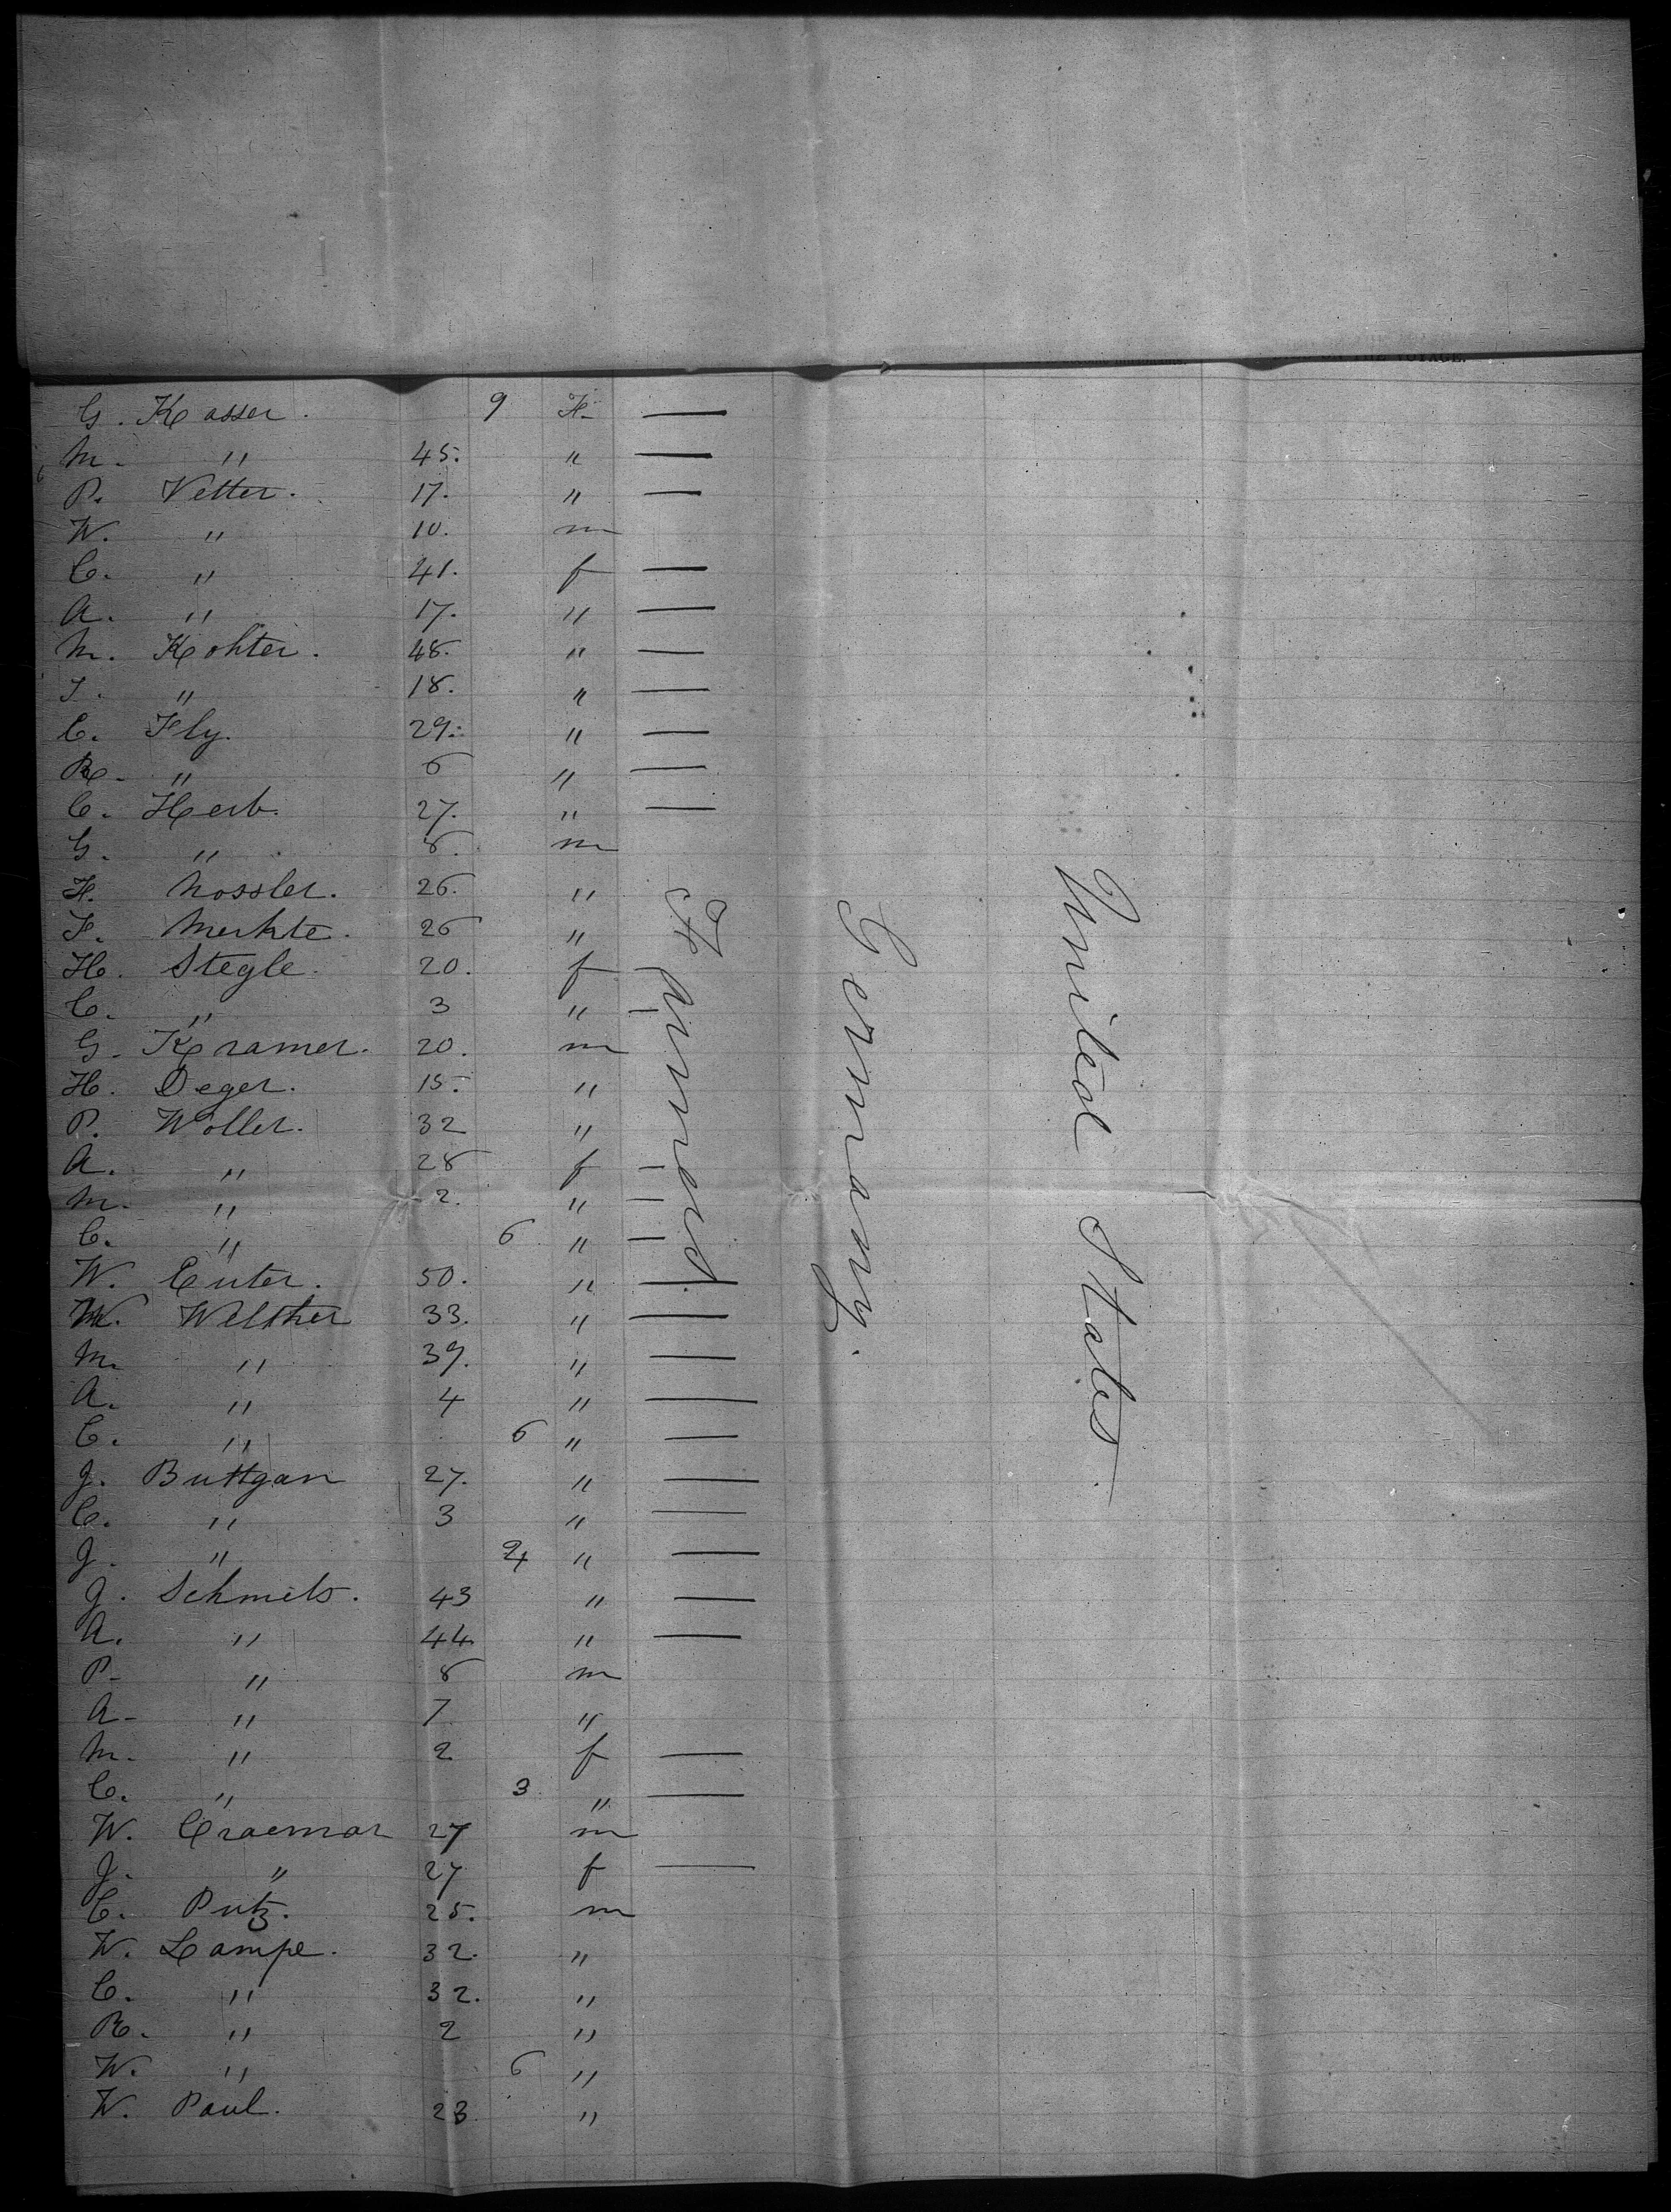 VOYAGE.
G. Kasser. 9 F. —
M. " 45. " —
P. Vetter. 17. " —
W. " 10. m
C. " 41. f —
A. " 17. " —
M. Kohter. 48. " —
J. " 18. " —
C. Fly. 29. " —
R. " 6 " —
C. Herb. 27. " —
G. " 8. m
F. Mossler. 26. "
F. Merkte. 26 "
H. Stegle. 20. f —
C. " 3 " —
G. Kramer. 20. m
H. Deger. 15. "
P. Woller. 32 "
A. " 28 f —
M. " 2. " —
C. " 6 " —
W. Enter. 50. " —
W. Welther 33. " —
M. " 39. " —
A. " 4 " —
C. " 6 " —
J. Buttgan 27. " —
C. " 3 " —
J. " 4 " —
J. Schmets. 43 " —
A. " 44. " —
P. " 8 m
A. " 7 "
M. " 2 f —
C. " 3 " —
W. Craemar 27 m
J. " 27 f —
C. Putz. 25. m
W. Lampe. 32. "
C. " 32. "
R. " 2 "
W. " 6 "
W. Paul. 23. "
Germany.
United States.